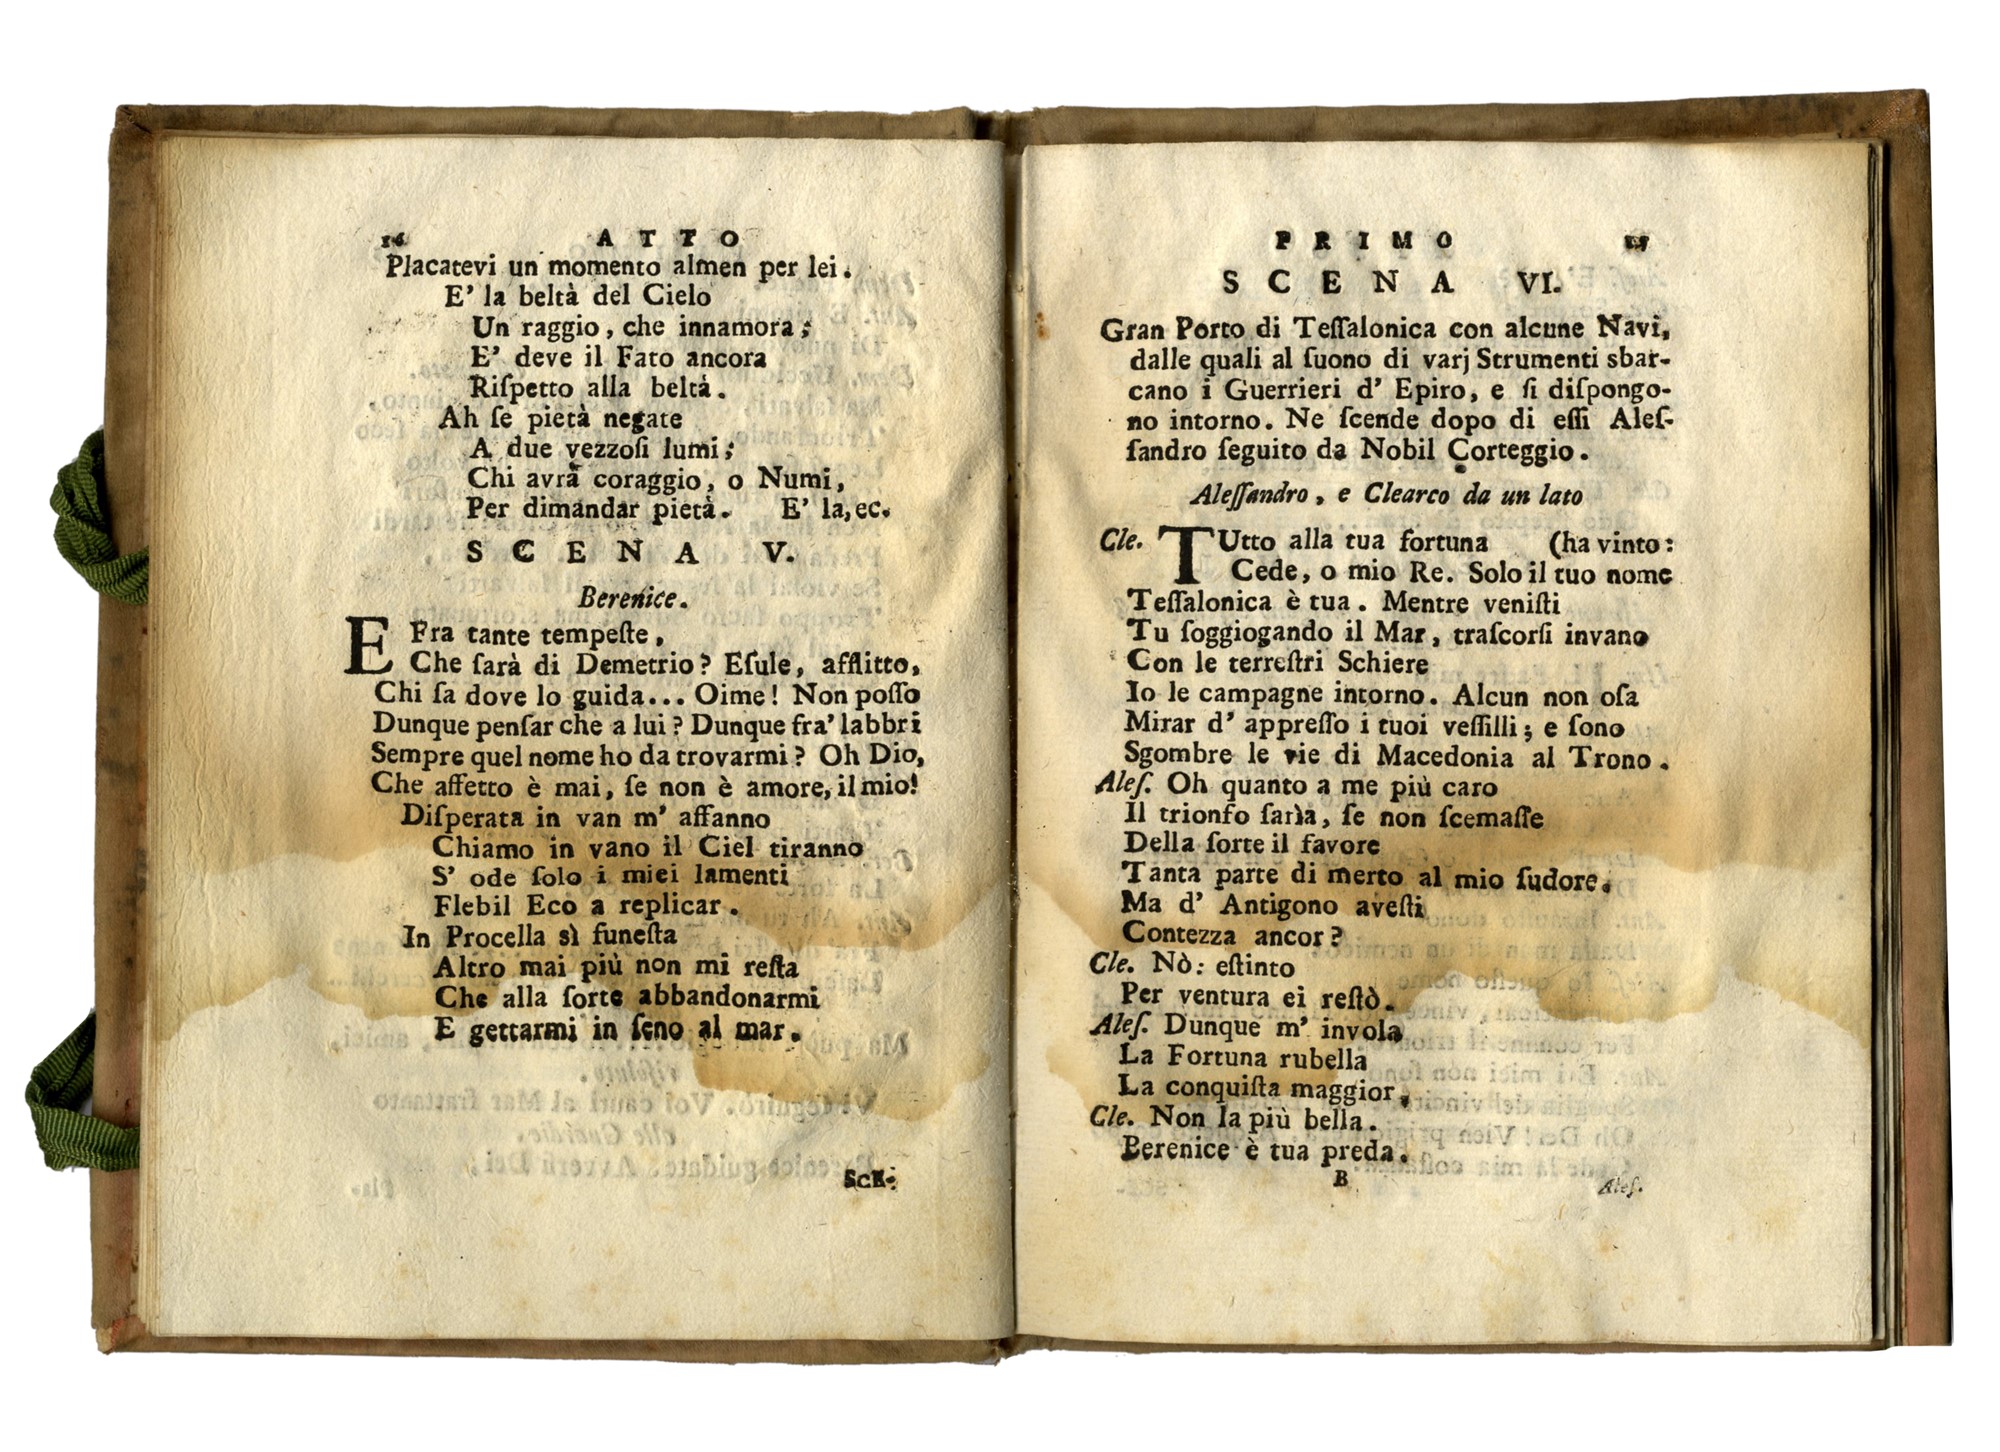 16 ATTO
Placatevi un momento almen per lei.
E' la beltà del Cielo
Un raggio, che innamora;
E' deve il Fato ancora
Riſpetto alla beltà.
Ah ſe pietà negate
A due vezzoſi lumi;
Chi avrà coraggio, o Numi,
Per dimandar pietà. E' la, ec.
SCENA V.
Berenice.
E Fra tante tempeſte,
Che ſarà di Demetrio? Eſule, afflitto,
Chi ſa dove lo guida... Oime! Non poſſo
Dunque penſar che a lui? Dunque fra' labbri
Sempre quel nome ho da trovarmi? Oh Dio,
Che affetto è mai, ſe non è amore, il mio!
Diſperata in van m' affanno
Chiamo in vano il Ciel tiranno
S' ode ſolo i miei lamenti
Flebil Eco a replicar.
In Procella sì funeſta
Altro mai più non mi reſta
Che alla ſorte abbandonarmi
E gettarmi in ſeno al mar.
SCE-
PRIMO
SCENA VI.
Gran Porto di Teſſalonica con alcune Navi,
dalle quali al ſuono di varj Strumenti sbar-
cano i Guerrieri d' Epiro, e ſi diſpongo-
no intorno. Ne ſcende dopo di eſſi Aleſ-
ſandro ſeguito da Nobil Corteggio.
Aleſſandro, e Clearco da un lato
Cle. TUtto alla tua fortuna (ha vinto:
Cede, o mio Re. Solo il tuo nome
Teſſalonica è tua. Mentre veniſti
Tu ſoggiogando il Mar, traſcorſi invano
Con le terreſtri Schiere
Io le campagne intorno. Alcun non oſa
Mirar d' appreſſo i tuoi veſſilli; e ſono
Sgombre le vie di Macedonia al Trono.
Aleſ. Oh quanto a me più caro
Il trionfo ſarìa, ſe non ſcemaſſe
Della ſorte il favore
Tanta parte di merto al mio ſudore.
Ma d' Antigono aveſti
Contezza ancor?
Cle. Nò: eſtinto
Per ventura ei reſtò.
Aleſ. Dunque m' invola
La Fortuna rubella
La conquiſta maggior.
Cle. Non la più bella.
Berenice è tua preda.
B Aleſ.